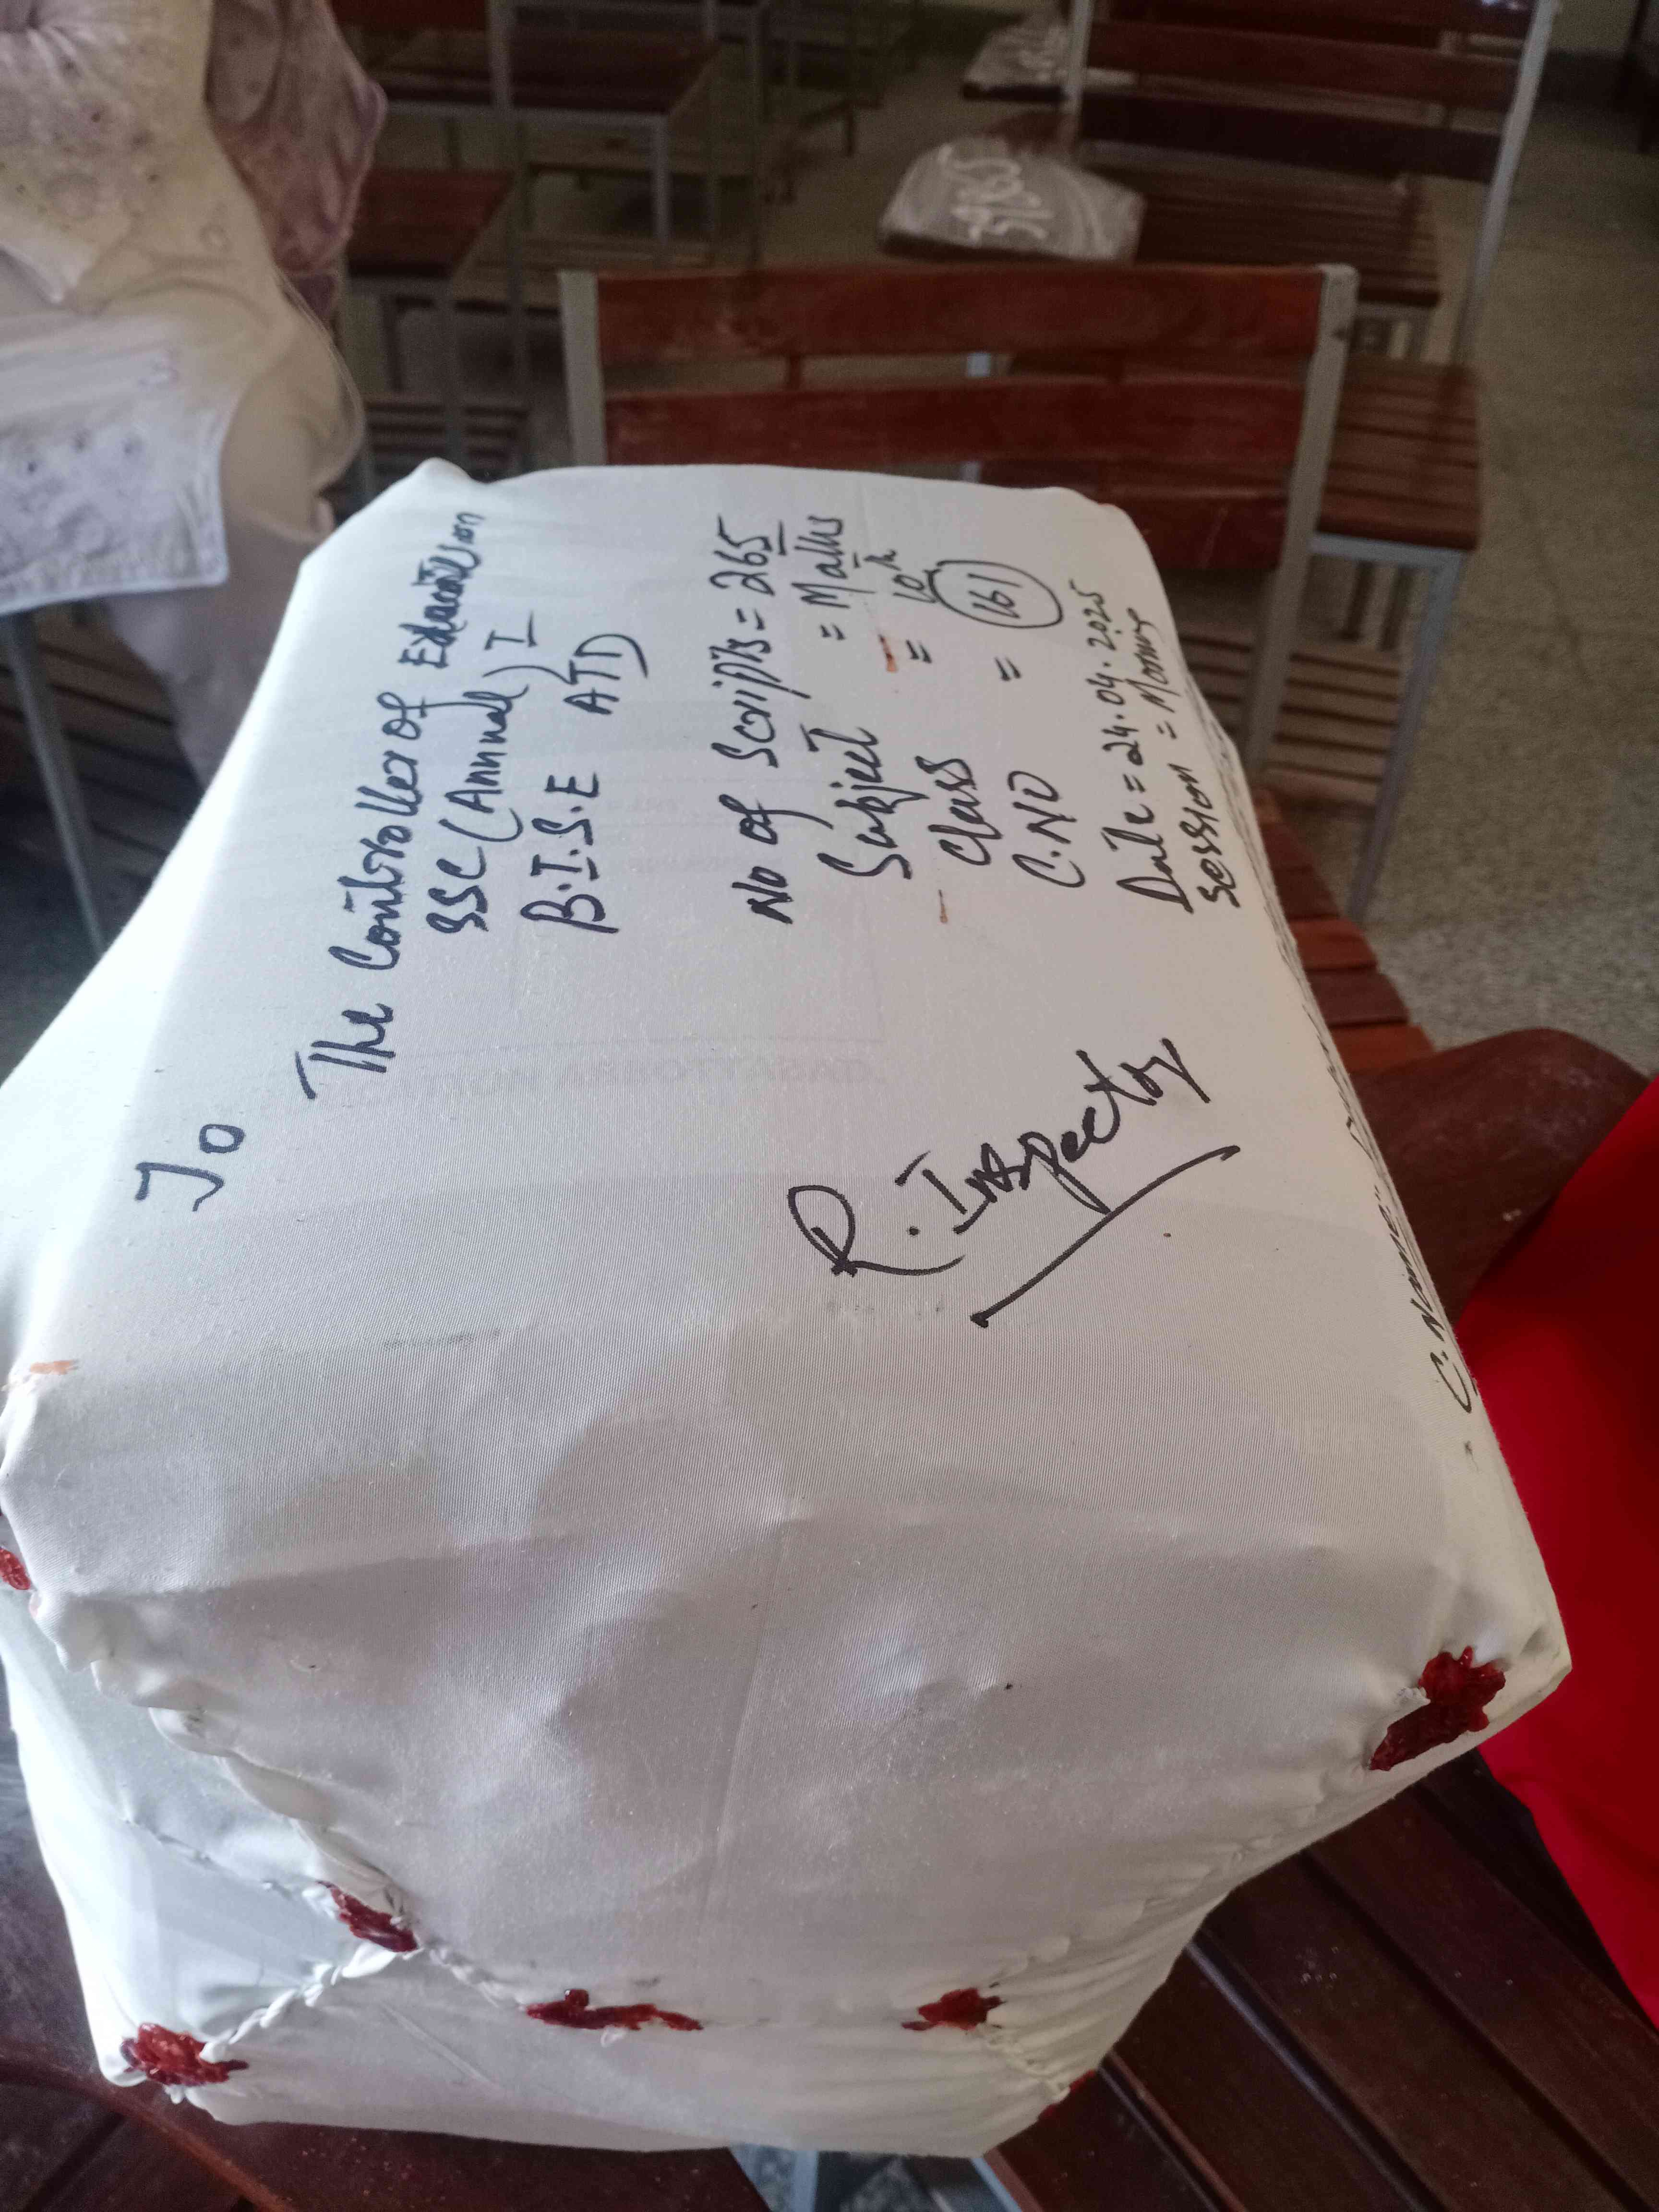 To
The Controller of Examination
SSC (Annual) I
B.I.S.E ATD
No of Scripts = 265
Subject = Maths
Class = 10th
C.NO = 161
Date = 24.04.2025
Session = Morning
R. Inspector
C. Name: